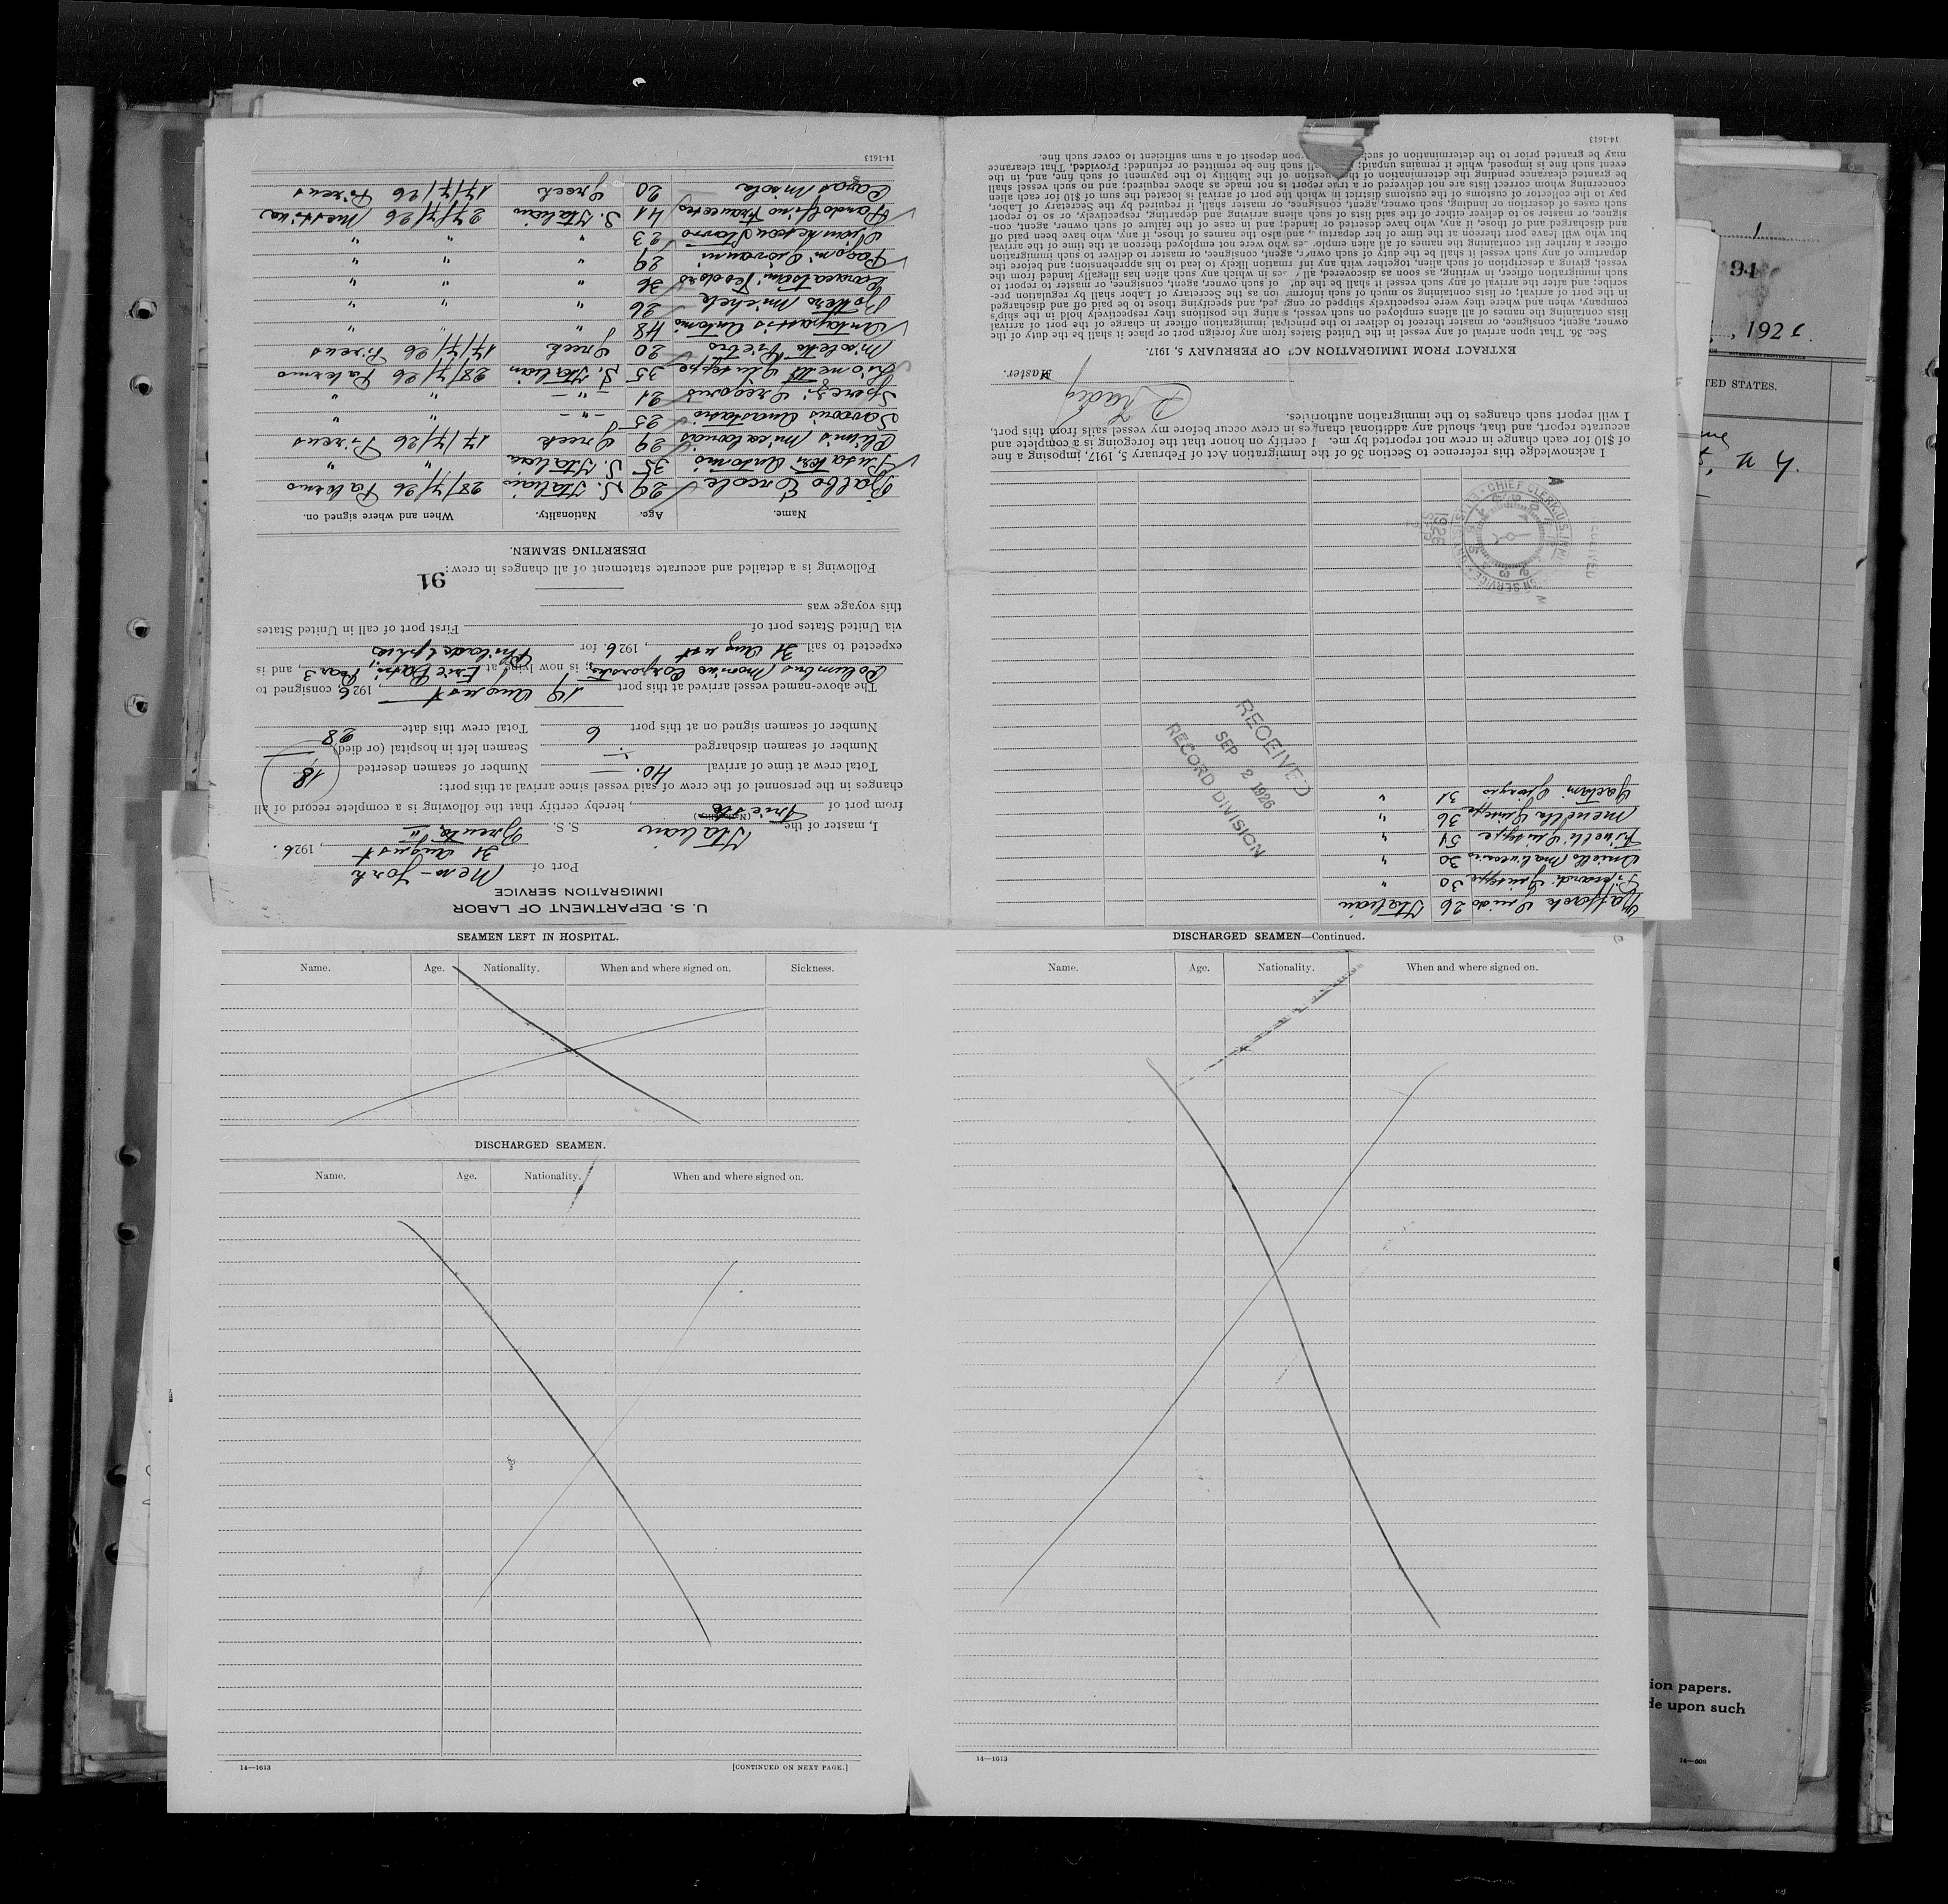 U. S. DEPARTMENT OF LABOR
IMMIGRATION SERVICE
Port of New-York
31 August, 1926.
I, master of the Italian S. S. "Brenta"
(Nationality)
from port of Trieste, hereby certify that the following is a complete record of all
changes in the personnel of the crew of said vessel since arrival at this port:
Total crew at time of arrival 40. Number of seamen deserted 18
Number of seamen discharged Seamen left in hospital (or died)
Number of seamen signed on at this port 6 Total crew this date 28
The above-named vessel arrived at this port 19 August, 1926, consigned to
Columbus Marine Corporation; is now lying at Erie Basin, Pear 3, and is
expected to sail 31 August, 1926 for Philadelphia.
via United States port of First port of call in United States
this voyage was
91
Following is a detailed and accurate statement of all changes in crew:
DESERTING SEAMEN.
Name. Age. Nationality. When and where signed on.
Balbo Ercole 29 S. Italian 28/7/26 Palermo
Antonio 35 S. Italian " "
29 Greek 17/7/26 Pireus
Anastasio 25 -"- " "
Gregorio 21 -"- " "
Giuseppe 35 S. Italian 28/7/26 Palermo
Pietro 20 Greek 17/7/26 Pireus
Antonio 48 " " "
Michele 26 " " "
Teodoro 36 " " "
Giovanni 29 " " "
Stavro 23 " " "
Pandolfino Francesco 41 S. Italian 27/7/26 Messina
Nicola 20 Greek 17/7/26 Pireus
14-1613
Guido 26 Italian
Giuseppe 30 "
30 "
Giuseppe 51 "
Menella Giuseppe 36 "
Gaetani Giorgio 31 "
RECEIVED
SEP 2 1926
RECORD DIVISION
CHIEF CLERK, U.S. IMMI
SERVICE
SEP
1926
I acknowledge this reference to Section 36 of the Immigration Act of February 5, 1917, imposing a fine
of $10 for each change in crew not reported by me. I certify on honor that the foregoing is a complete and
accurate report, and that, should any additional changes in crew occur before my vessel sails from this port,
I will report such changes to the immigration authorities.
Master.
EXTRACT FROM IMMIGRATION ACT OF FEBRUARY 5, 1917.
Sec. 36. That upon arrival of any vessel in the United States from any foreign port or place it shall be the duty of the
owner, agent, consignee, or master thereof to deliver to the principal immigration officer in charge of the port of arrival
lists containing the names of all aliens employed on such vessel, stating the positions they respectively hold in the ship's
company, when and where they were respectively shipped or engaged, and specifying those to be paid off and discharged
in the port of arrival; or lists containing so much of such information as the Secretary of Labor shall by regulation pre-
scribe; and after the arrival of any such vessel it shall be the duty of such owner, agent, consignee, or master to report to
such immigration officer, in writing, as soon as discovered, all cases in which any such alien has illegally landed from the
vessel, giving a description of such alien, together with any information likely to lead to his apprehension; and before the
departure of any such vessel it shall be the duty of such owner, agent, consignee, or master to deliver to such immigration
officer a further list containing the names of all alien employees who were not employed thereon at the time of the arrival
but who will leave port thereon at the time of her departure, and also the names of those, if any, who have been paid off
and discharged and of those, if any, who have deserted or landed; and in case of the failure of such owner, agent, con-
signee, or master so to deliver either of the said lists of such aliens arriving and departing, respectively, or so to report
such cases of desertion or landing, such owner, agent, consignee, or master shall, if required by the Secretary of Labor,
pay to the collector of customs of the customs district in which the port of arrival is located the sum of $10 for each alien
concerning whom correct lists are not delivered or a true report is not made as above required; and no such vessel shall
be granted clearance pending the determination of the question of the liability to the payment of such fine, and, in the
event such fine is imposed, while it remains unpaid; shall such fine be remitted or refunded: Provided, That clearance
may be granted prior to the determination of such upon deposit of a sum sufficient to cover such fine.
14-1613
SEAMEN LEFT IN HOSPITAL.
Name. Age. Nationality. When and where signed on. Sickness.
DISCHARGED SEAMEN.
Name. Age. Nationality. When and where signed on.
14—1613 [CONTINUED ON NEXT PAGE.]
DISCHARGED SEAMEN—Continued.
Name. Age. Nationality. When and where signed on.
14—1613
91
, 192
TED STATES.
N. Y.
ion papers.
de upon such
14—608